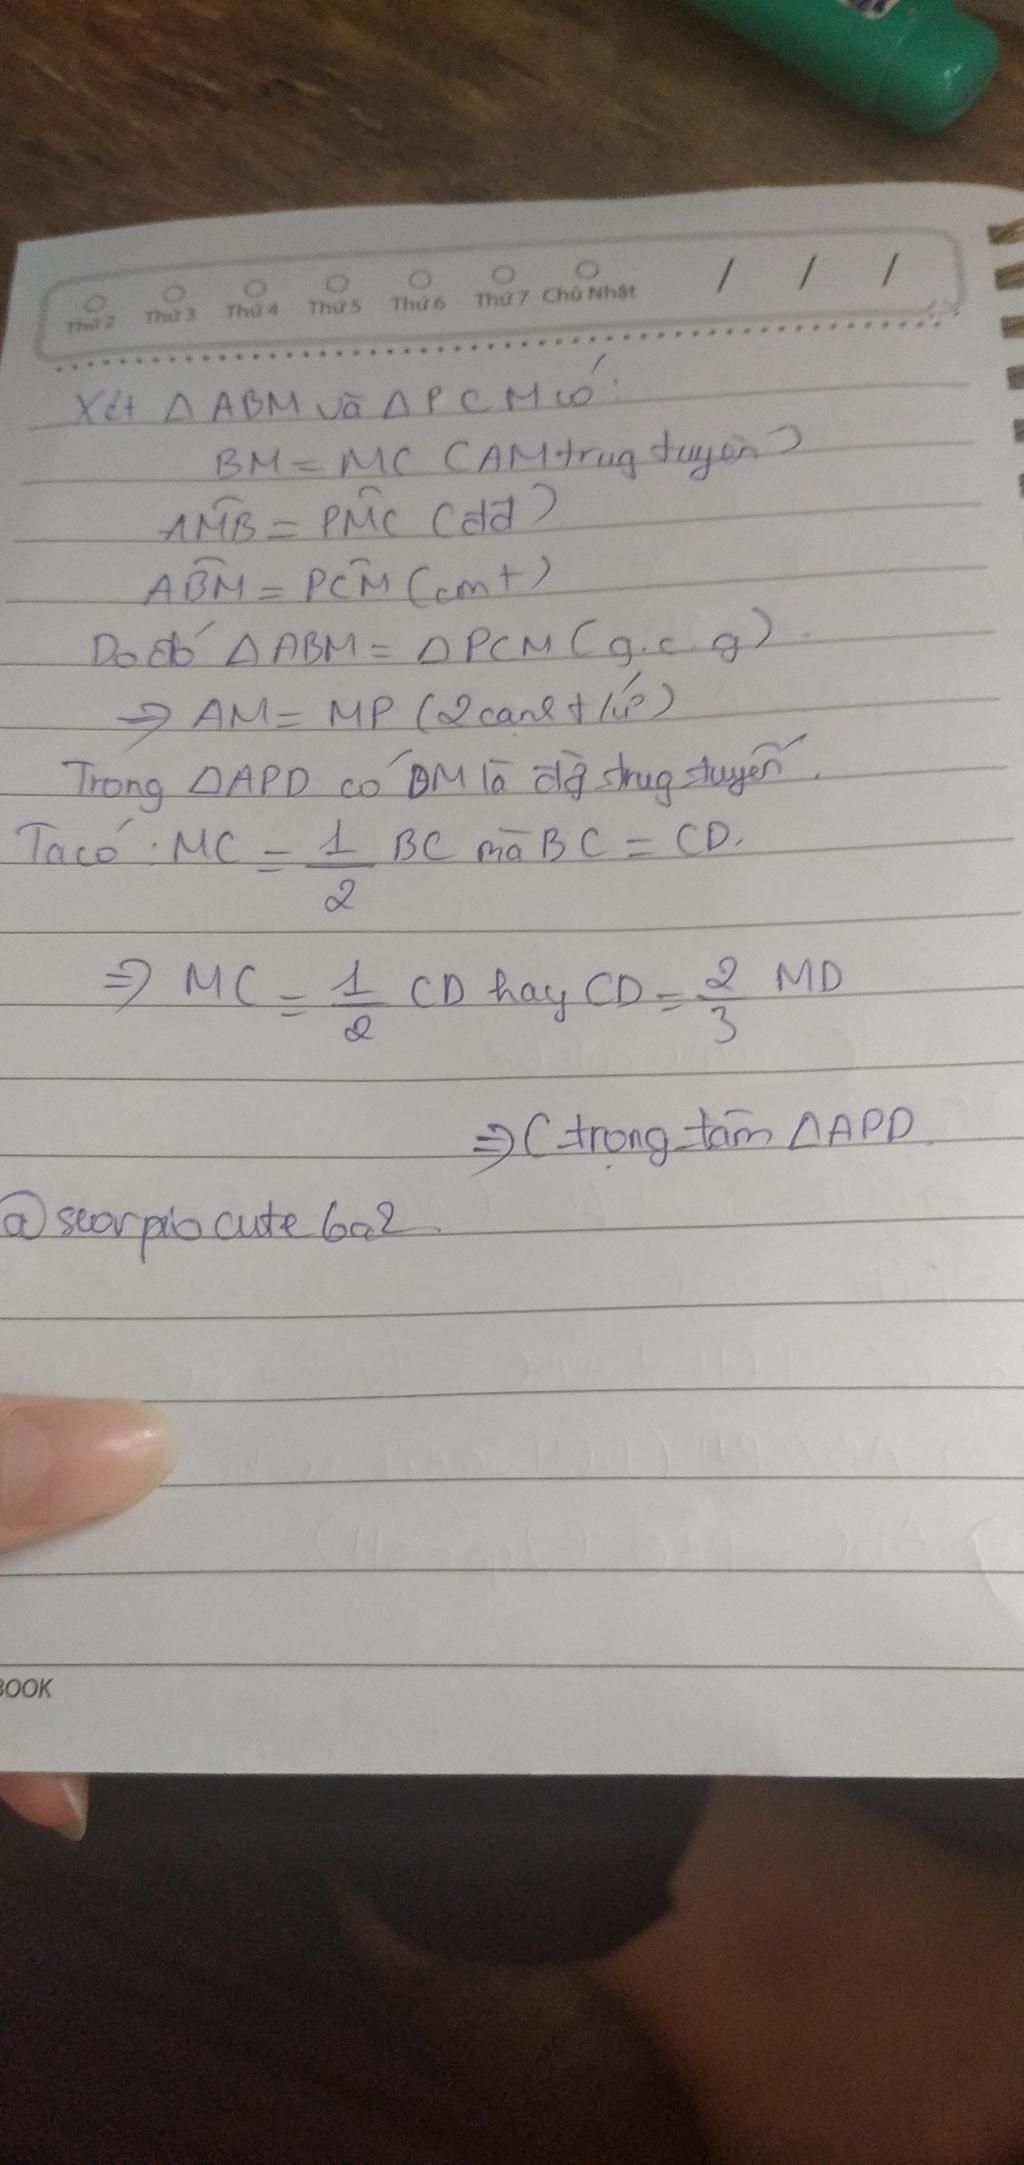 Thứ 2 Thứ 3 Thứ 4 Thứ 5 Thứ 6 Thứ 7 Chủ Nhật / / /
Xét Δ ABM và Δ PCM có:
BM = MC (AM trug tuyến)
AM̂B = PM̂C (dd)
AB̂M = PĈM (cmt)
Do đó Δ ABM = Δ PCM (g.c.g).
⇒ AM = MP (2 cạnh t/ứ)
Trong ΔAPD có DM là đg trug tuyến.
Ta có: MC = 1/2 BC mà BC = CD.
⇒ MC = 1/2 CD hay CD = 2/3 MD
⇒ C trọng tâm ΔAPD
@scorpio cute 6a2
BOOK